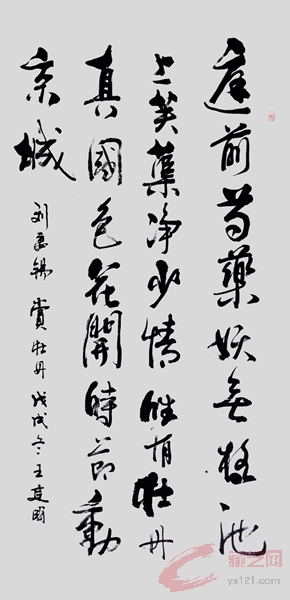 庭前芍藥妖無格池
上芙蕖净少情唯有牡丹
真國色花開時節動
京城
刘禹锡賞牡丹戊戌冬王建